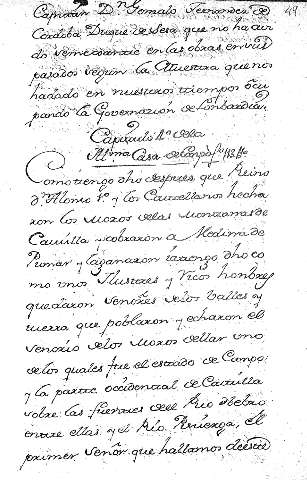 Capitan Dn Gonzalo Fernandez de 49
Cordoba Duque de Sesa que no ha avi
do semejante en las obras en sus
pasados segun la Muestra que nos
ha dado en nuestros tiempos ocu
pando la Governacion de Lombardia.
Capitulo 1º de la
Casa de Campo
Como tengo dho despues que Reino
Dn Alonso 1º y los Castellanos hecha
ron los Moros de las Montañas de
Castilla y cobraron a Medina de
Pumar y la ganaron tengo dho co
mo unos Ilustres y Ricos hombres
quedaron señores de los Valles y
tierra que poblaron y echaron el
señorio de los Moros de llos uno
de los quales fue el estado de Campo
y la parte occidental de Castilla
sobre las fuentes del Rio Hebro
entre ellas y el Rio Pisuerga, el
primer señor que hallamos de este